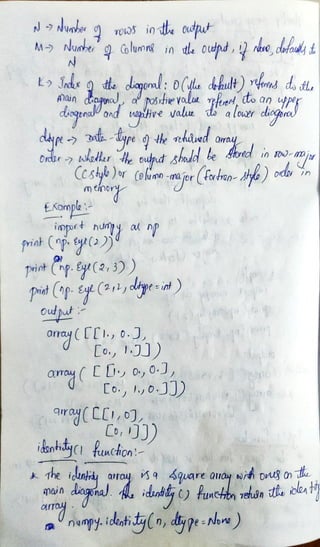 N → Number of rows in the output
M → Number of Columns in the output, if None, defaults to
N
K → Index of the diagonal: 0 (the default) referrs to the
main diagonal, a positive value referrs to an upper
diagonal and negative value to a lower diagonal
dtype → Data-type of the returned array
order → whether the output should be stored in row-major
(C style) or column-major (fortran-style) order in
memory
Example:-
import numpy as np
print (np.eye(2))
print (np.eye(2,3))
print (np.eye(2,2, dtype=int)
output:-
array([[1., 0.],
[0., 1.]])
array([[1., 0., 0.],
[0., 1., 0.]])
array([[1, 0],
[0, 1]])
identity() function:-
The identity array is a square array with ones on the
main diagonal. The identity() function return the identity
array.
numpy.identity(n, dtype=None)